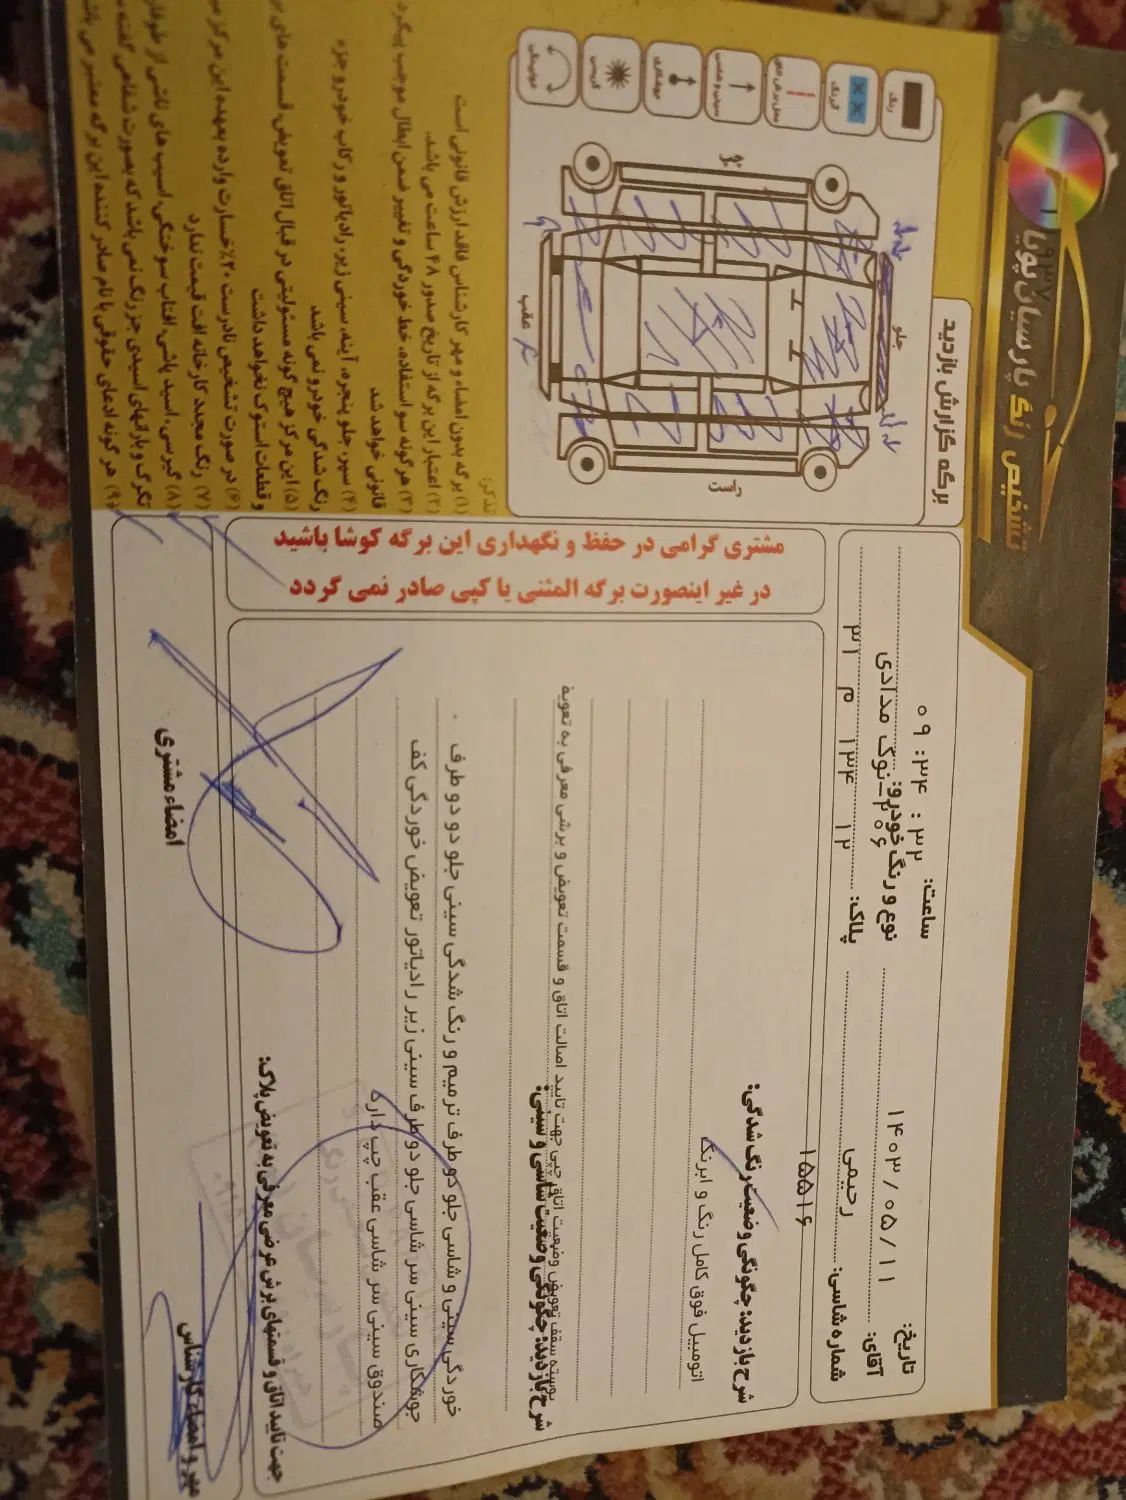 تشخیص رنگ پارسیان پویا
برگه گزارش بازدید
رنگ
جلو
عقب
راست
تذکر:
(۱) برگه بدون امضاء و مهر کارشناس فاقد ارزش قانونی است
(۲) اعتبار این برگه از تاریخ صدور ۴۸ ساعت می باشد.
(۳) هرگونه سو استفاده، خط خوردگی و تغییر ضمن ابطال موجب پیگرد
قانونی خواهد شد
(۴) سپر، جلو پنجره، آینه، سینی زیر، رادیاتور و رکاب خودرو جزء
رنگ شدگی خودرو نمی باشد
(۵) این مرکز هیچ گونه مسئولیتی در قبال اتاق تعویض، قسمت های
و قطعات استوک نخواهد داشت
(۶) در صورت تشخیص نادرست ۲۰٪ خسارت وارده بعهده این مرکز
(۷) رنگ مجدد کارخانه افت قیمت ندارد
(۸) گیرسی، اسید پاشی، آفتاب سوختگی، آسیب های ناشی از
تگرگ و بارانهای اسیدی جز رنگ نمی باشد که بصورت شفاهی گفته
(۹) هر گونه ادعای حقوقی با نام صادر کننده این برگه معتبر می
مشتری گرامی در حفظ و نگهداری این برگه کوشا باشید
در غیر اینصورت برگه المثنی یا کپی صادر نمی گردد
تاریخ: ۱۴۰۳/۰۵/۱۱ ساعت: ۰۹:۳۴:۳۲
آقای: رحیمی نوع و رنگ خودرو: ۲۰۶-نوک مدادی
شماره شاسی: ۱۵۵۱۶ پلاک: ۱۲ ۱۳۴ م ۳۱
شرح بازدید: چگونگی وضعیت رنگ شدگی:
اتومبیل فوق کامل رنگ و ابرنگ
پوسته سقف تعویض وضعیت اتاق چپی جهت تایید اصالت اتاق و قسمت تعویض و برشی معرفی به تعویه
شرح بازدید: چگونگی وضعیت شاسی و سینی:
خوردگی سینی و شاسی جلو دو طرف ترمیم و رنگ شدگی سینی جلو دو دو طرف .
جوشکاری سینی سر شاسی جلو دو طرف سینی زیر رادیاتور تعویض خوردگی کف
صندوق سینی سر شاسی عقب چپ دارد
جهت تایید اتاق و قسمتهای برش عرضی معرفی به تعویض پلاک:
مهر و امضاء کارشناس
امضاء مشتری